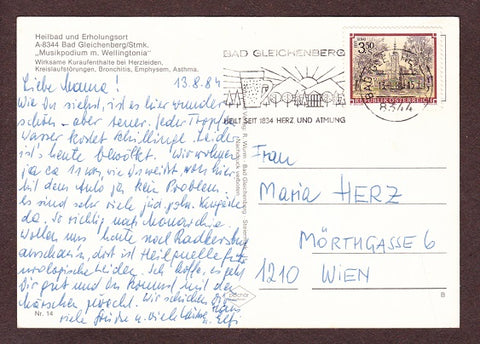 Heilbad und Erholungsort
A-8344 Bad Gleichenberg/Stmk.
„Musikpodium m. Wellingtonia"
Wirksame Kuraufenthalte bei Herzleiden,
Kreislaufstörungen, Bronchitis, Emphysem, Asthma.
Liebe Mama! 13.8.84
Wie du siehst, ist es hier wunder-
schön - aber teuer. Jeder Tropfen
Wasser kostet Schillinge. Leider
ist's heute bewölkt. Wir wohnen
ja ca 11 km, wie du weißt, von hier
mit dem Auto ja kein Problem.
Es sind sehr viele Kurgäste
da. So richtig nach Monarchie
Wollen uns heute noch Radkersburg
anschauen, dort ist Heilquelle für
urologische Leiden. Ich hoffe, es geht
Dir gut und es kommst mit den
Wir schicken Dir
viele Grüße u. viele
u. Elfi
Nr. 14
BAD GLEICHENBERG
HEILT SEIT 1834 HERZ UND ATMUNG
S 3.50
REPUBLIK ÖSTERREICH
8344
Frau
Maria HERZ
MÖRTHGASSE 6
1210 WIEN
B